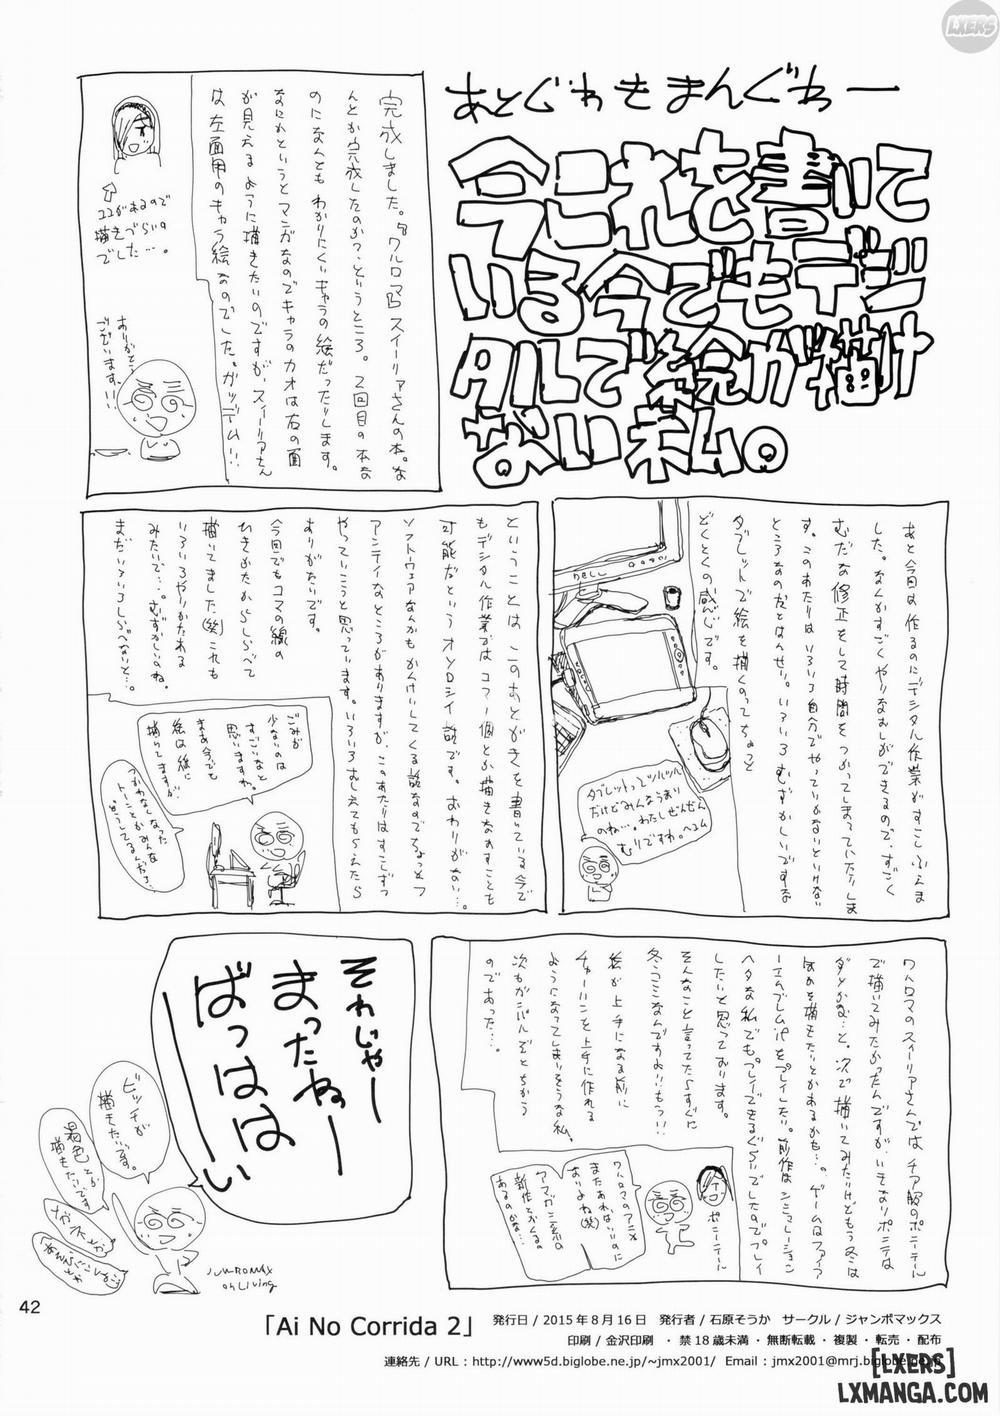 あとぐわきまんぐわー
今これを書いて
いる今でもデジ
タルで絵が描け
ない私。
完成しました。『ワルロマ』スイーリアさんの本。な
んとか完成したのかっ、というところ。2回目の本な
のになんともわかりにくいキャラの絵だったりします。
なにかというとマンガなのでキャラのカオは右の面
が見えるように描きたいのですが、スイーリアさん
は左面用のキャラ絵なのでした。ガッデム!!
ココがあるので
描きづらいの
でした…。
ありがとう
ございます!!
あと今回は作るのにデジタル作業がすこしふえま
した。なんかすごくやりなおしができるので、すごく
むだな修正をして時間をつかってしまっていたりしま
す。このあたりはいろいろ自分でやっていかないといけない
ところなのだとはんせい。いろいろむずかしいですな
タブレットで絵を描くのってちょっと
どくとくの感じです。
DELL
タブレットってツルツル
だけどみんなうまい
のね…。わたしぜんぜん
むりですわ。
ということは、このあとがきを書いている今で
もデジタル作業ではコマ一個とか描きなおすことも
可能だというオソロシイ話です。おわりがない…。
ソフトウェアなんかもかんけいしてくる話なのでちょっとフ
アンティなところがありますが、このあたりはすこしずつ
やっていこうと思っています。いろいろおしえてもらえたら
ありがたいです。
今回でもコマの線の
ひきかたからしらべて
描いてました(笑)これも
いろいろやりかたある
みたいで…。むずかしいね。
まだいろいろしらべないと…。
ごみが
少ないのは
すごいなと
思いますわ。
まあ今でも
絵は紙に
描いてますが
つかわなくなった
トーンとかみんな
どうしてるんだろ…
ワルロマのスイーリアさんではチア服のポニーテール
で描いてみたかったんですが、いきなりポニテは
ダメかな…と、次で描いてみたいけどもう冬は
なにかを描きたいとかあるかも…。ゲームはファイア
ーエムブレムifをプレイしたい。前作はシミュレーション
ヘタな私でもプレイできるぐらいでしたのでプレイ
したいと思っております。
そんなこと言ってたらすぐに
冬コミなんですよ!!もっ!!
絵が上手になる前に
チャーハンを上手に作れる
ようになってしまいそうな私。
次もガンバルぞとちかう
のであった…。
ポニーテール
ワルロマのアニメ
またあればいいのに
なりよね(笑)
アマガミ系の
新作とかくるの
あるのかな…
それじゃー
まったねー
ばっはは
ーい
ビッチが
描きたいです。
褐色とか
描きたいです
メガネとか。
JUMBOMAX
on Living
42
「Ai No Corrida 2」
発行日 / 2015年8月16日　発行者 / 石原そうか　サークル / ジャンボマックス
印刷 / 金沢印刷　・禁18歳未満・無断転載・複製・転売・配布
連絡先 / URL : http://www5d.biglobe.ne.jp/~jmx2001/　Email : jmx2001@mrj.biglobe.ne.jp
LXERS
[LXERS]
LXMANGA.COM